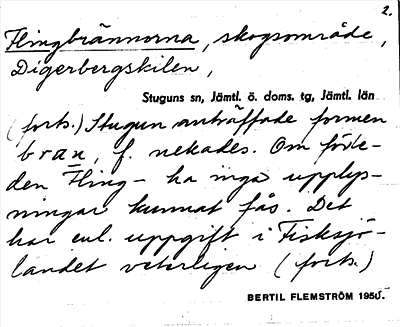 2.
Flingbrännorna, skogsområde,
Digerbergskilen,
Stuguns sn, Jämtl. ö. doms. tg, Jämtl. län
(forts.) Stugun anträffade formen
bran, f. nekades. Om förle-
den Fling- ha inga upplys-
ningar kunnat fås. Det
har enl. uppgift i Fisksjö-
landet veterligen (forts.)
BERTIL FLEMSTRÖM 1950.